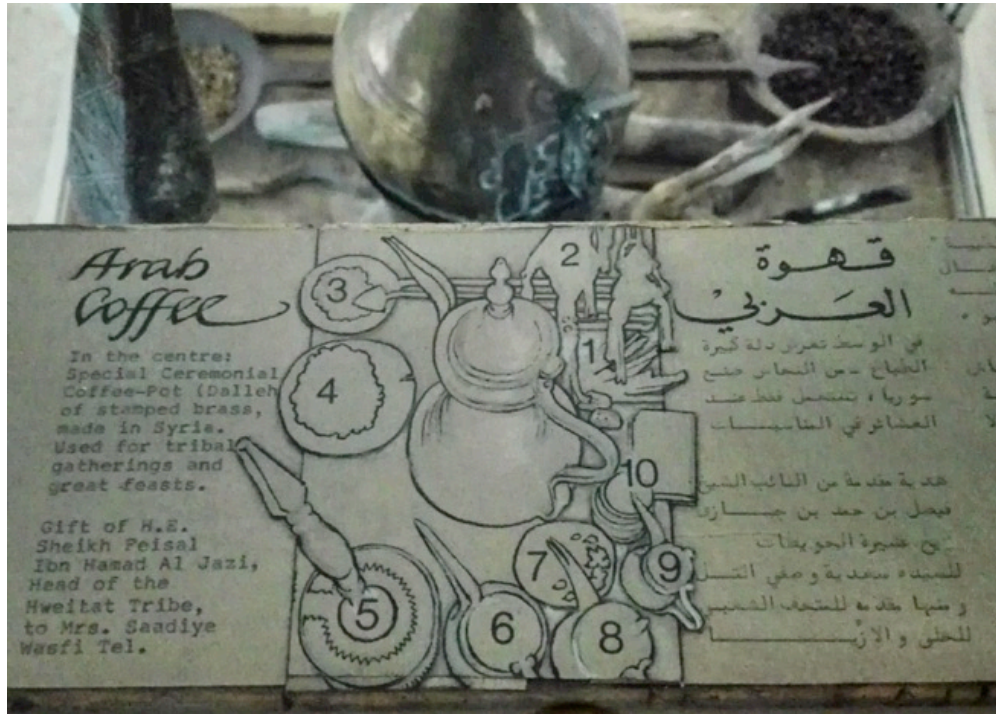 Arab
Coffee
In the centre:
Special Ceremonial
Coffee-Pot (Dalleh
of stamped brass,
made in Syria.
Used for tribal
gatherings and
great feasts.
Gift of H.E.
Sheikh Feisal
Ibn Hamad Al Jazi,
Head of the
Hweitat Tribe,
to Mrs. Saadiye
Wasfi Tel.
2
3
1
4
10
7
9
5
6
8
قهوة
العربي
في الوسط دلة كبيرة
من النحاس صنع
سوريا تستعمل فقط عند
العشائر في المناسبات
هدية مقدمة من النائب الشيخ
فيصل بن حمد بن جازي
شيخ عشيرة الحويطات
للسيده سعدية وصفي التل
ومنها مقدمه للمتحف الشعبي
للحلى و الازيا